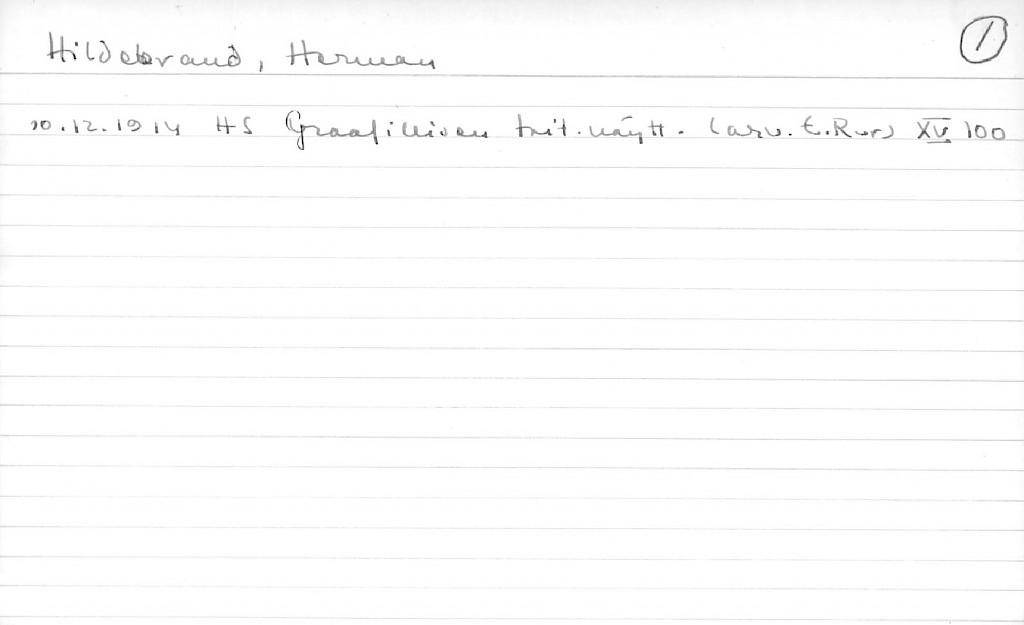 Hildebrand, Herman
①
10.12.1914 HS Graafillisen tait.näytt. (arv. E.R-r) XV 100